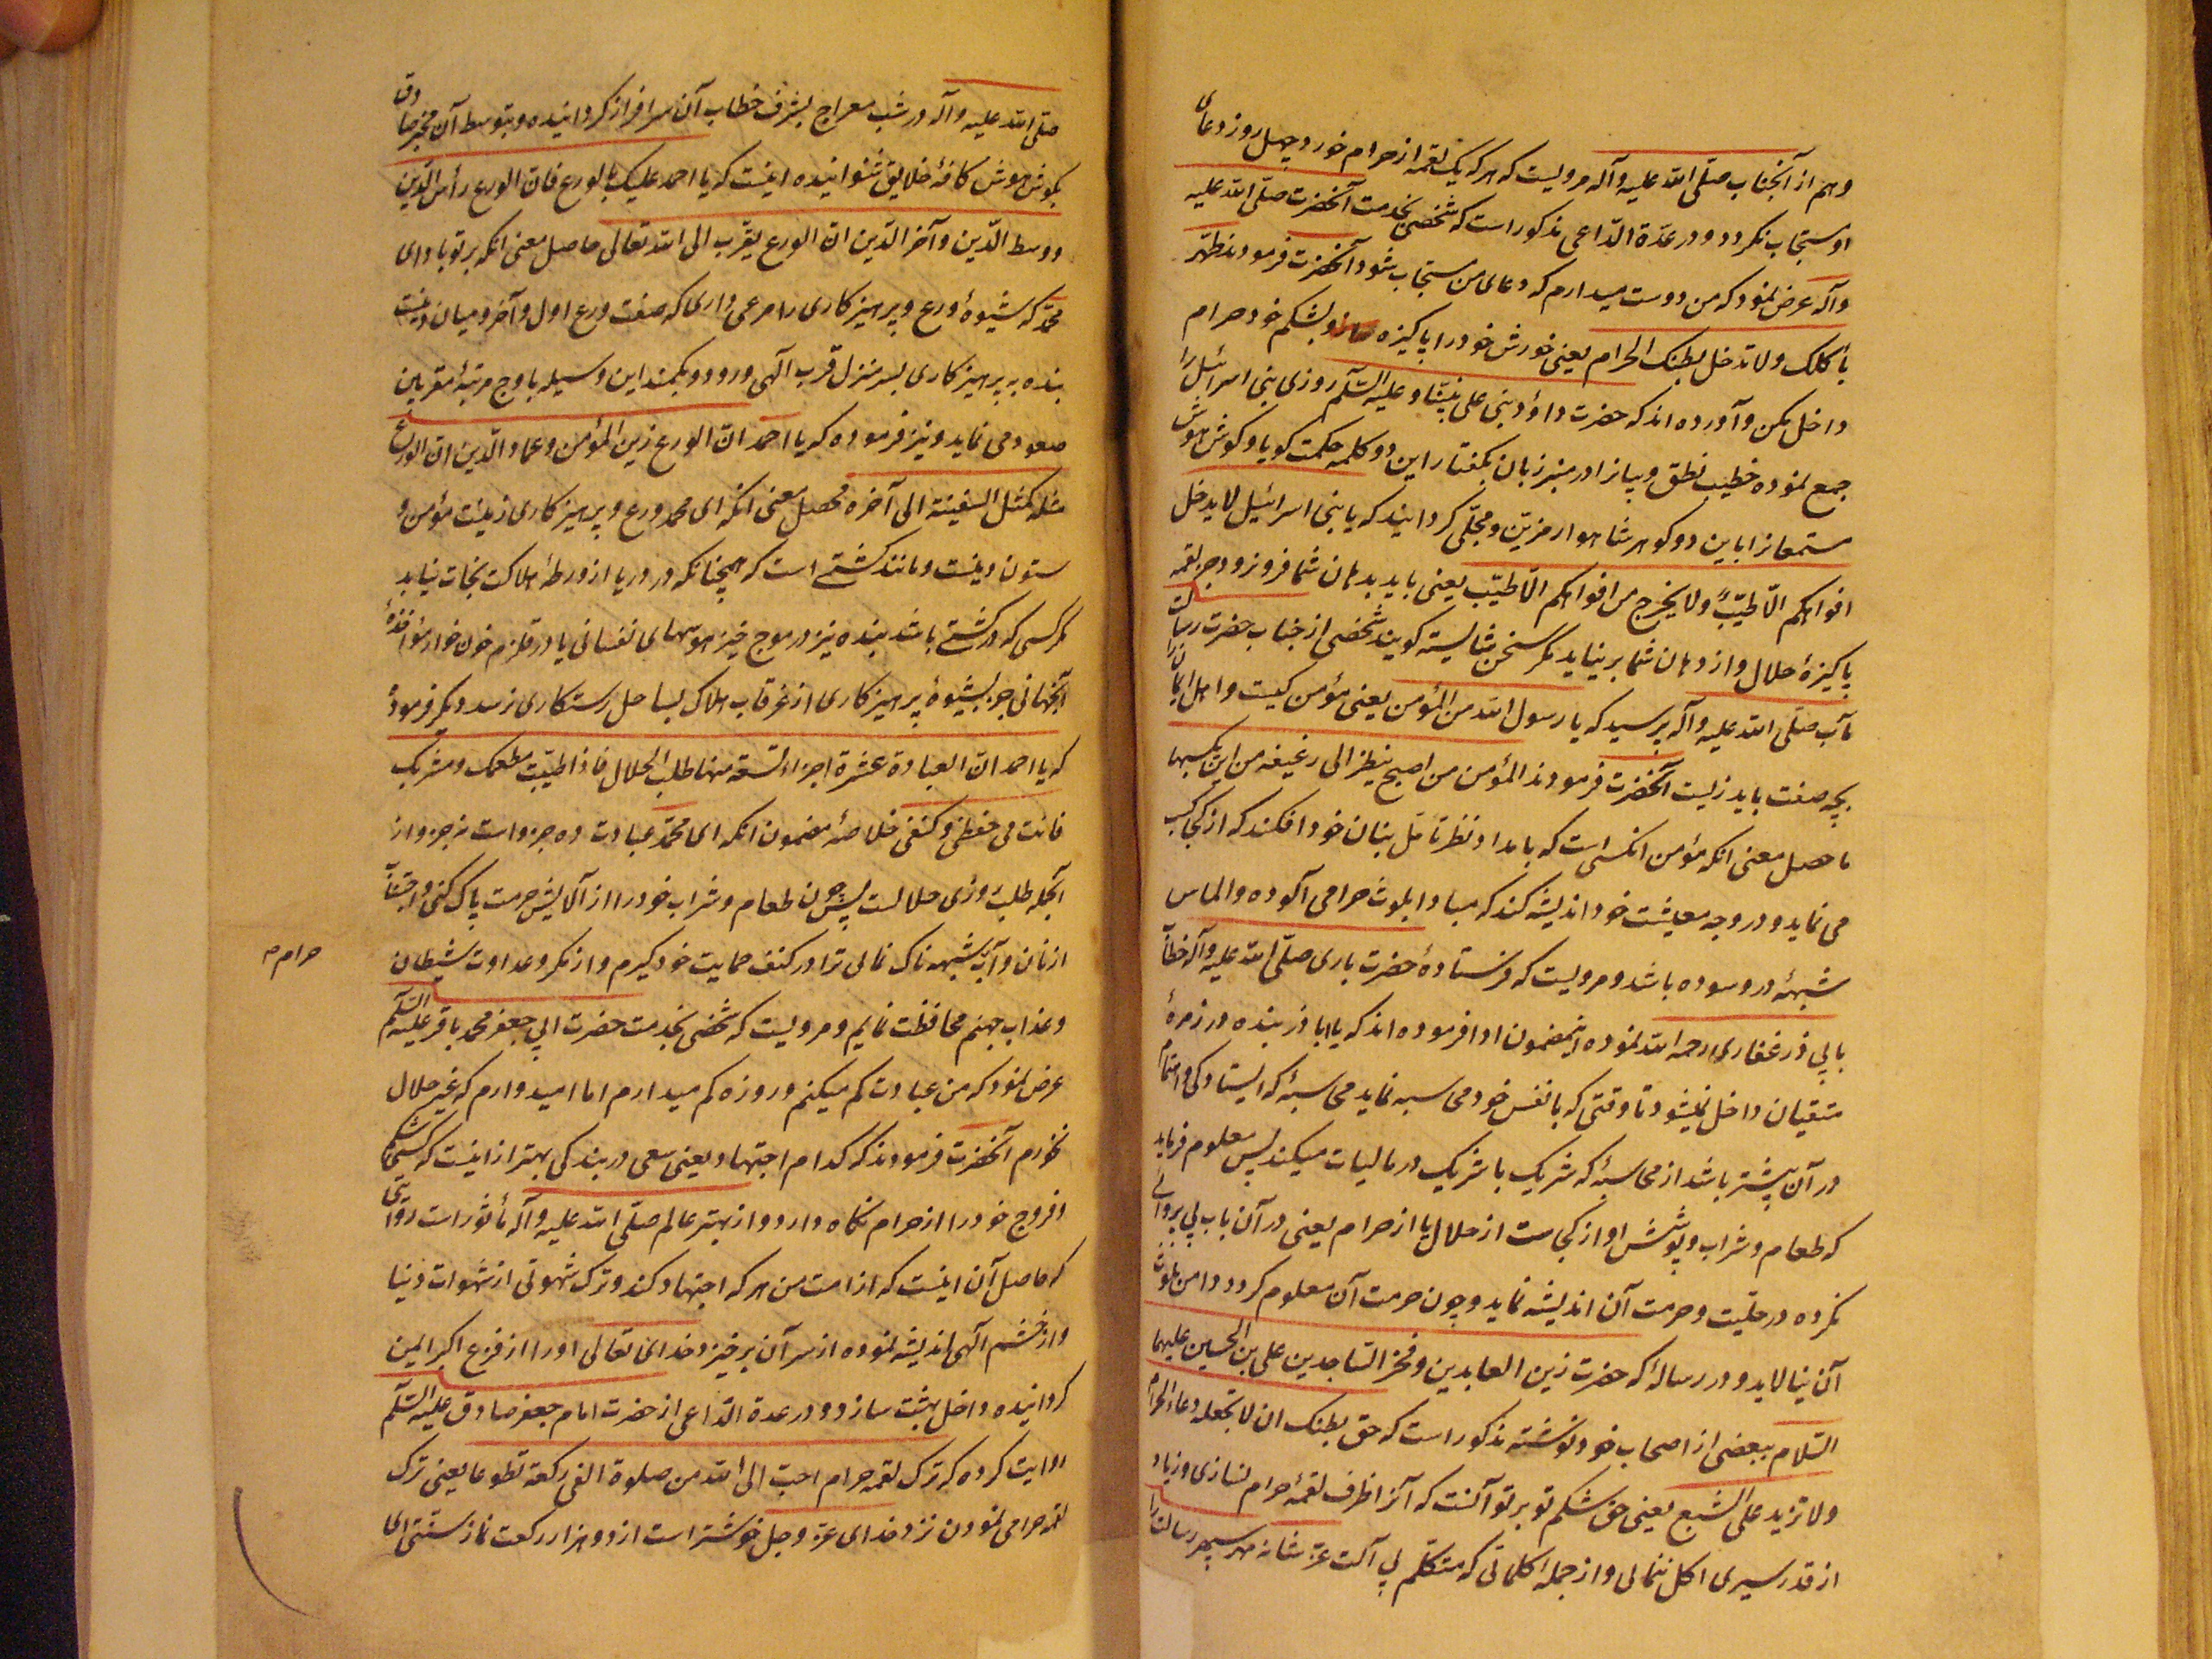 وهم از آنجناب صلّی الله علیه وآله مرویست که هر که یک لقمه از حرام خورد چهل روز دعای
او مستجاب نکردد و در عدّة الدّاعی مذکور است که شخصی بخدمت آنحضرت صلّی الله علیه
وآله عرض نمود که من دوست میدارم که دعای من مستجاب شود آنحضرت فرمودند طهّر
مأکلک ولا تدخل بطنک الحرام یعنی خورش خود را پاکیزه ساز و بشکم خود حرام
داخل مکن و آورده اند که حضرت داؤد نبی علی نبیّنا و علیه السّلام روزی بنی اسرائیل را
جمع نموده خطیب نطق و بیانرا در منبر زبان بکفتار این دو کلمه حکمت کویا و کوش هوش
مستمعانرا باین دو کوهر شاهوار مزیّن و محلّی کردانیدند که یا بنی اسرائیل لا یدخل
افواهکم الّا طیّبٌ ولا یخرج من افواهکم الّا طیّب یعنی باید بدهان شما فرو نرود جز لقمه
پاکیزهٔ حلال و از دهان شما بر نیاید مکر سخن شایسته کویند شخصی از جناب حضرت رسالت
مآب صلّی الله علیه وآله پرسید که یا رسول الله من المؤمن یعنی مؤمن کیست و اهل ایمان را
بچه صفت باید زیست آنحضرت فرمودند المؤمن من اصبح ینظر الی رغیفه من این یکسبها
ماحصل معنی انکه مؤمن انکسی است که بامداد نظر تامّل بنان خود افکند که از کجا کسب
می نماید و در وجه معیشت خود اندیشه کند که مبادا بلوث حرامی آلوده و الماس
شبهه در و سوده باشد و مرویست که فرستادهٔ حضرت باری صلّی الله علیه وآله خطاب
بابی ذر غفاری رحمه الله نموده اینمضمون ادا فرموده اند که یا ابا ذر بنده در زمرهٔ
متقیان داخل نمیشود تا وقتی که با نفس خود محاسبه نماید محاسبهٔ که ایستادکی و اهتمام
در آن بیشتر باشد از محاسبهٔ که شریک با شریک در مالیات میکند پس معلوم فرماید
که طعام و شراب و پوشش او از کجاست از حلال یا از حرام یعنی در آن باب بی پروائی
نکرده در حلّیت و حرمت آن اندیشه نماید و چون حرمت آن معلوم کردد دامن بلوث
آن نیالاید و در رسالهٔ که حضرت زین العابدین و فخر السّاجدین علی بن الحسین علیهما
السّلام ببعضی از اصحاب خود نوشته مذکور است که حق بطنک ان لا تجعله وعاء الحرام
ولا تزید علی الشبع یعنی حق شکم تو بر تو آنست که آنرا ظرف لقمهٔ حرام نسازی و زیاد
از قدر سیری اکل ننمائی و از جمله کلماتی که متکلّم بی آلت عزّ شانه مهر سپهر رسالت را
صلّی الله علیه وآله در شب معراج بشرف خطاب آن سرافراز کردانیده و بتوسط آن مخبر صادق
بکوش هوش کافهٔ خلایق شنوانیده اینست که یا احمد علیک بالورع فانّ الورع رأس الدّین
و وسط الدّین و آخر الدّین انّ الورع یقرب الی الله تعالی حاصل معنی انکه بر تو باد ای
محمّد که شیوهٔ ورع و پرهیزکاری را مرعی داری که صفت ورع اول و آخر و میان دینست
بنده به پرهیزکاری بسر منزل قرب آلهی ورود و بکمند این وسیله باوج مرتبهٔ مقربین
صعود می نماید و نیز فرموده که یا احمد انّ الورع زین المؤمن و عماد الدّین انّ الورع
مثله کمثل السفینة الی آخره محصل معنی انکه ای محمد ورع و پرهیزکاری زینت مؤمن و
ستون دینست و مانند کشتی است که همچنانکه در دریا از ورطهٔ هلاکت نجات نیابد
مکر کسی که در کشتی باشد بنده نیز در موج خیز هوسهای نفسانی یا در قلزم خون خوار مؤاخذهٔ
آنجهانی جز بشیوهٔ پرهیزکاری از غرقاب هلاک بساحل رستکاری نرسد و دیکر فرمودهٔ
که یا احمد انّ العبادة عشرة اجزاء تسعة منها طلب الحلال فاذا طیّبت مطعمک و مشربک
فانت فی حفظی و کنفی خلاصهٔ مضمون انکه ای محمّد عبادت ده جزو است نه جزو از
آنجمله طلب روزی حلالست پس چون طعام و شراب خود را از آلایش حرمت پاک کنی و اجتناب
از نان و آب شبهه ناک نمائی ترا در کنف حمایت خود کیرم و از مکر و عداوت شیطان
حرام م
و عذاب جهنم محافظت نمایم و مرویست که شخصی بخدمت حضرت ابی جعفر محمد باقر علیه السّلام
عرض نمود که من عبادت کم میکنم و روزه کم میدارم اما امیدوارم که غیر حلال
نخورم آنحضرت فرمودند که کدام اجتهاد یعنی سعی در بندکی بهتر از اینست که کسی شکم
و فروج خود را از حرام نکاه دارد و از بهتر عالم صلّی الله علیه وآله مأثور است روایتی
که حاصل آن اینست که از امت من هر که اجتهاد کند و ترک شهوتی از شهوات دنیا
و از خشم آلهی اندیشه نموده از سر آن برخیزد خدای تعالی او را از فزع اکبر ایمن
کردانیده داخل بهشت سازد و در عدة الدّاعی از حضرت امام جعفر صادق علیه السّلام
روایت کرده که ترک لقمه حرام احبّ الی الله من صلوة الفی رکعة تطوعا یعنی ترک
لقمه حرامی نمودن نزد خدای عزّ وجل خوشتر است از دو هزار رکعت نماز سنّتی ای